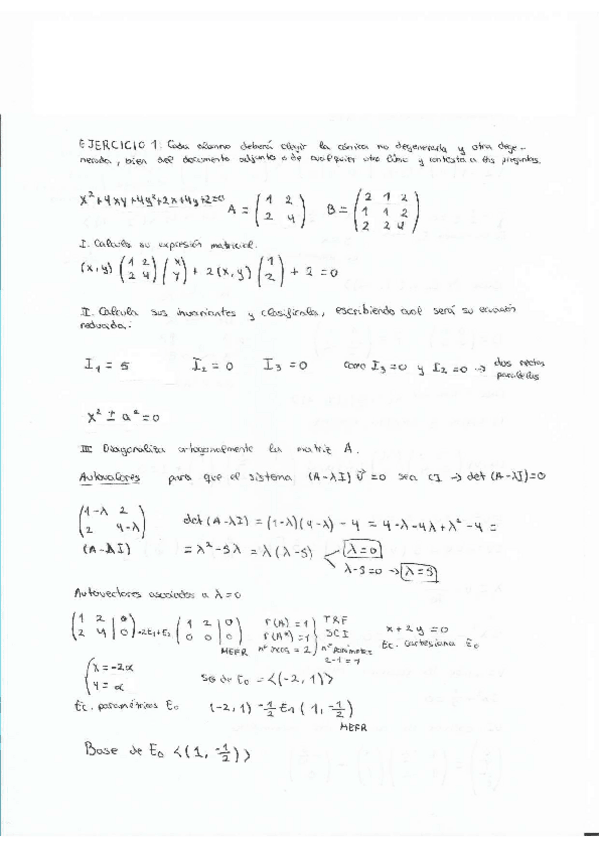 EJERCICIO 1: Cada alumno deberá elegir la cónica no degenerada y otra dege-
nerada, bien del documento adjunto o de cualquier otro libro y contesta a las preguntas.
x² + 4xy + 4y² + 2x + 4y + 2 = 0 A = (1 2 / 2 4) B = (2 1 2 / 1 1 2 / 2 2 4)
I. Calcula su expresión matricial.
(x, y) (1 2 / 2 4) (x / y) + 2(x, y) (1 / 2) + 2 = 0
II. Calcula sus invariantes y clasifícala, escribiendo cual será su ecuación
reducida.
I₁ = 5 I₂ = 0 I₃ = 0 como I₃ = 0 y I₂ = 0 → dos rectas paralelas
x² ± a² = 0
III Diagonaliza ortogonalmente la matriz A.
Autovalores para que el sistema (A-λI) v⃗ = 0 sea CI → det (A-λI) = 0
(1-λ 2 / 2 4-λ) det (A-λI) = (1-λ)(4-λ) - 4 = 4-λ-4λ+λ²-4 =
(A-λI) = λ² - 5λ = λ(λ-5) λ=0 λ-5=0 → λ=5
Autovectores asociados a λ=0
(1 2 | 0 / 2 4 | 0) -2E₁+E₂ (1 2 | 0 / 0 0 | 0) MEFR r(A) = 1 r(A*) = 1 nº incóg = 2 TRF SCI nº parámetros 2-1=1 x + 2y = 0 Ec. cartesiana E₀
{x = -2α / y = α SG de E₀ = <(-2, 1)>
Ec. paramétricas E₀ (-2, 1) -½E₁ (1, -½) MEFR
Base de E₀ <(1, -½)>